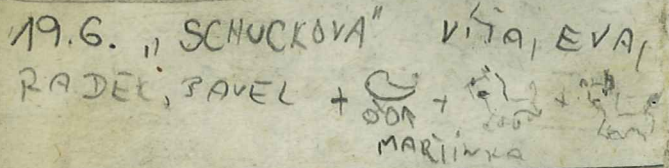 19.6. „SCHUCKOVA" VÍŤA, EVA,
RADEK, PAVEL + + +
MARŤÍNKA